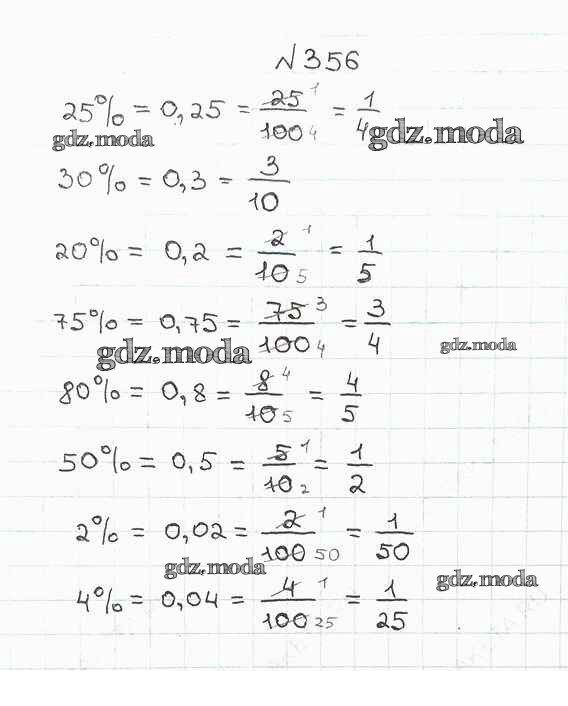 №356
25% = 0,25 = 25/100 = 1/4
gdz.moda
gdz.moda
30% = 0,3 = 3/10
20% = 0,2 = 2/10 = 1/5
75% = 0,75 = 75/100 = 3/4
gdz.moda
gdz.moda
80% = 0,8 = 8/10 = 4/5
50% = 0,5 = 5/10 = 1/2
2% = 0,02 = 2/100 = 1/50
gdz.moda
gdz.moda
4% = 0,04 = 4/100 = 1/25